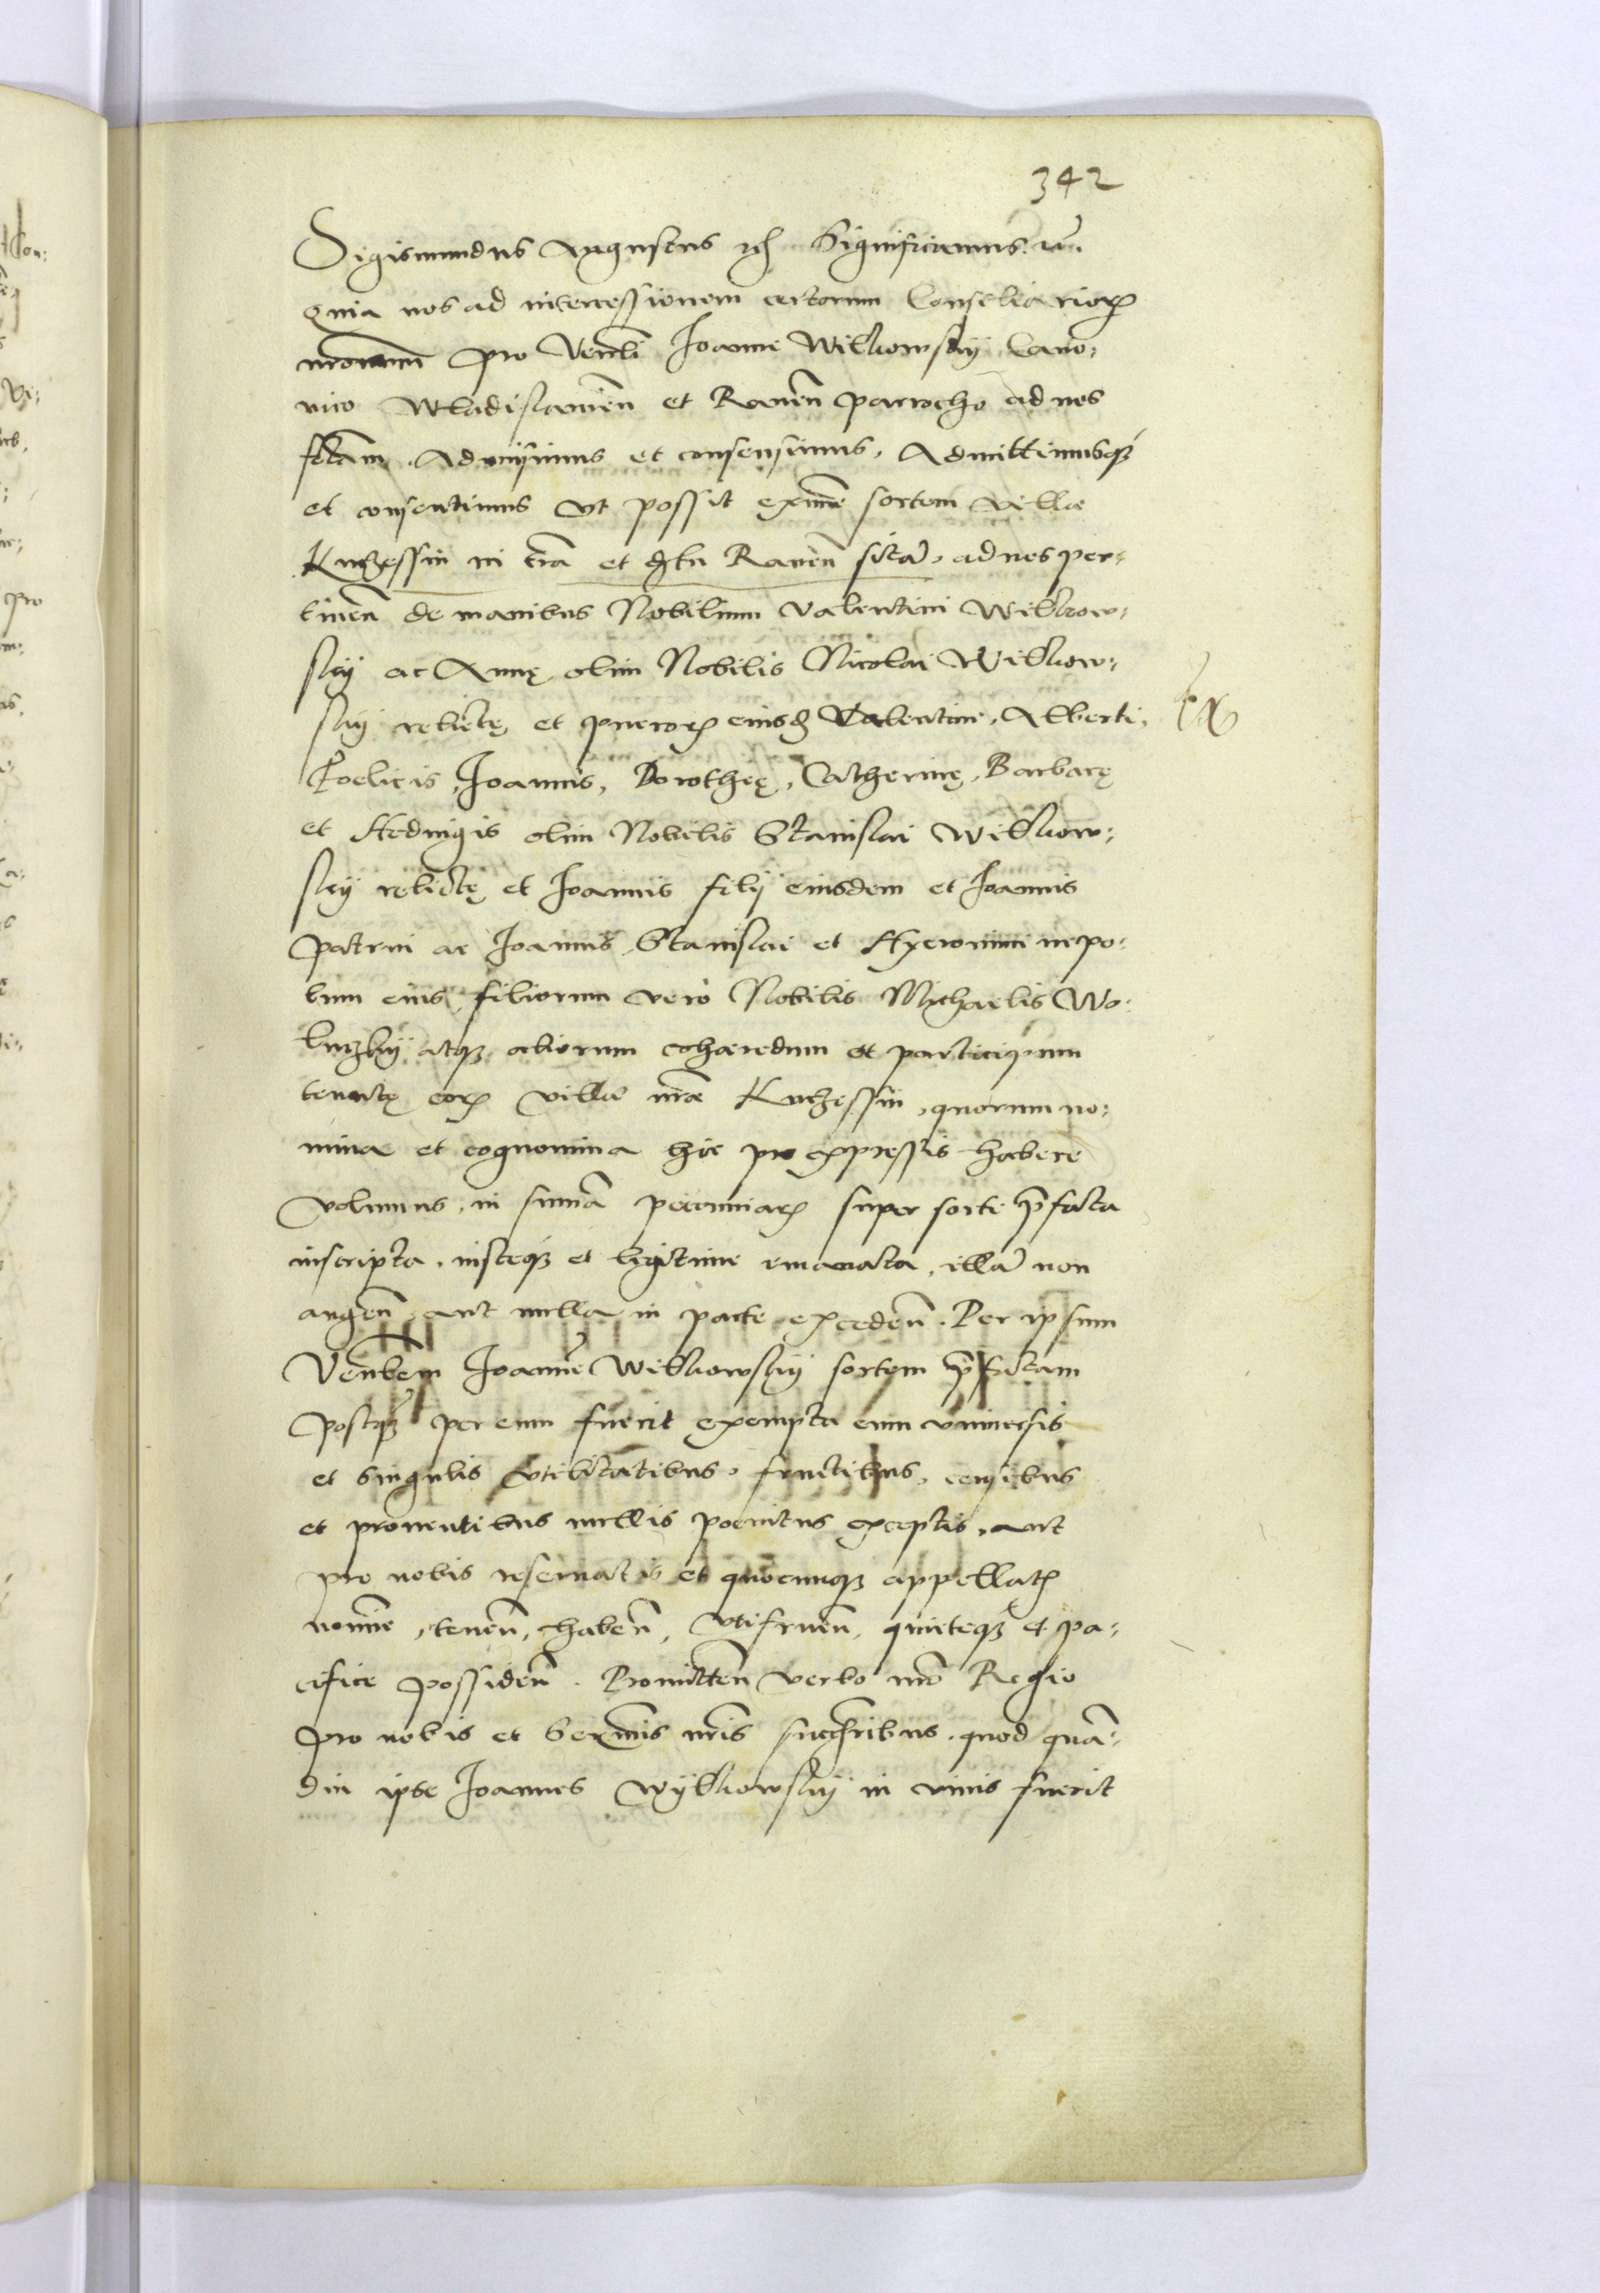 342
Sigismundus Augustus etc Significamus
quia nos ad intercessionem certorum Consiliarioꝝ
nrorum pro Venbli Joanne Wilkowskij Cano:
nico Wladislavien̄ et Raven̄ parrocho ad nos
fctam. Admisimus et consensimus, Admittimusqꝫ
et consentimus vt possit eximere sortem villae
Kuczessin in tra et dctu Raven̄ sitā, ad nos per:
tinen̄ de manibus Nobilium Valentini Wilkow:
skij ac Annę olim Nobilis Nicolai Wilkow:
skij relictę et pueroꝝ eiusd Valentini, Alberti,
Foelicis, Joannis, Dorotheę, Catherinę, Barbarę
et Hedvigis olim Nobilis Stanislai Wilkow:
skij relictę et Joannis filij eiusdem et Joannis
patrui ac Joannis, Stanislai et Hyeronimi nepo:
tum eius, filiorum vero Nobilis Michaelis Wo:
luczkij atqꝫ aliorum cohaeredum et participum
tenutę eoꝝ villae nrae Kuczessin, quorum no:
mina et cognomina hic pro expressis habere
volumus, in summa pecuniaꝝ super sorte pfata
inscripta, iusteqꝫ et legitime emanata, illā non
augen̄ aut nulla in parte exceden̄. Per ipsum
Venblem Joannē Wilkowskij sortem pfatam
postqꝫ per eum fuerit exempta cum vniuersis
et singulis vtilitatibus, fructibus, censibus
et prouentibus nullis poenitus exceptis, aut
pro nobis reseruatis et quocunqꝫ appellatꝭ
nomine, tenen̄, haben̄, vtifruen̄, quieteqꝫ et pa:
cifice possiden̄. Promitten̄ verbo nro Regio
pro nobis et Serenmis nris succribus, quod quā:
diu ipse Joannes Wylkowskij in viuis fuerit